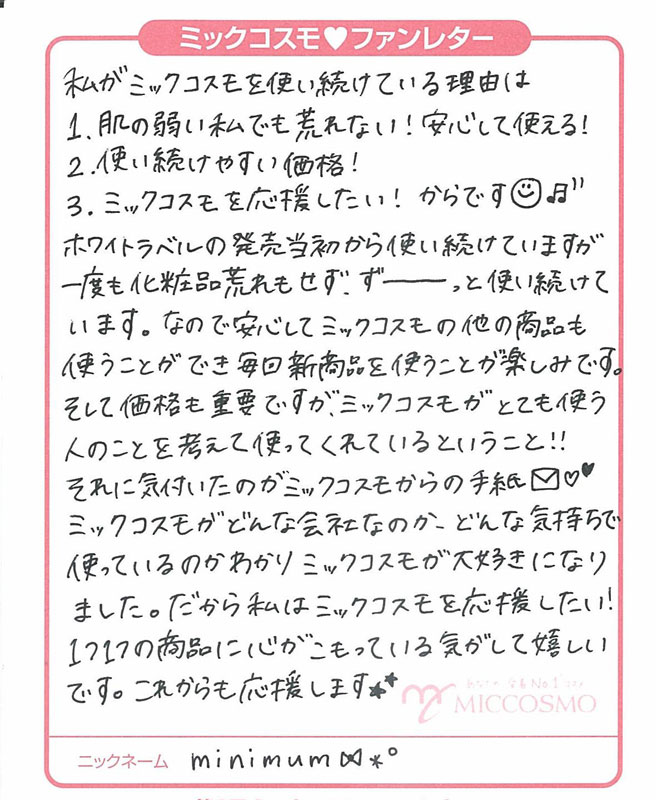 ミックコスモ♥ファンレター
私がミックコスモを使い続けている理由は
1. 肌の弱い私でも荒れない！安心して使える！
2. 使い続けやすい価格！
3. ミックコスモを応援したい！からです☺♫"
ホワイトラベルの発売当初から使い続けていますが
一度も化粧品荒れもせず、ず――っと使い続けて
います。なので安心してミックコスモの他の商品も
使うことができ毎回新商品を使うことが楽しみです。
そして価格も重要ですが、ミックコスモがとても使う
人のことを考えて使ってくれているということ!!
それに気付いたのがミックコスモからの手紙✉♡♥
ミックコスモがどんな会社なのか、どんな気持ちで
使っているのかわかりミックコスモが大好きになり
ました。だから私はミックコスモを応援したい！
1つ1つの商品に心がこもっている気がして嬉しい
です。これからも応援します★★
MICCOSMO
ニックネーム minimum⋈*°